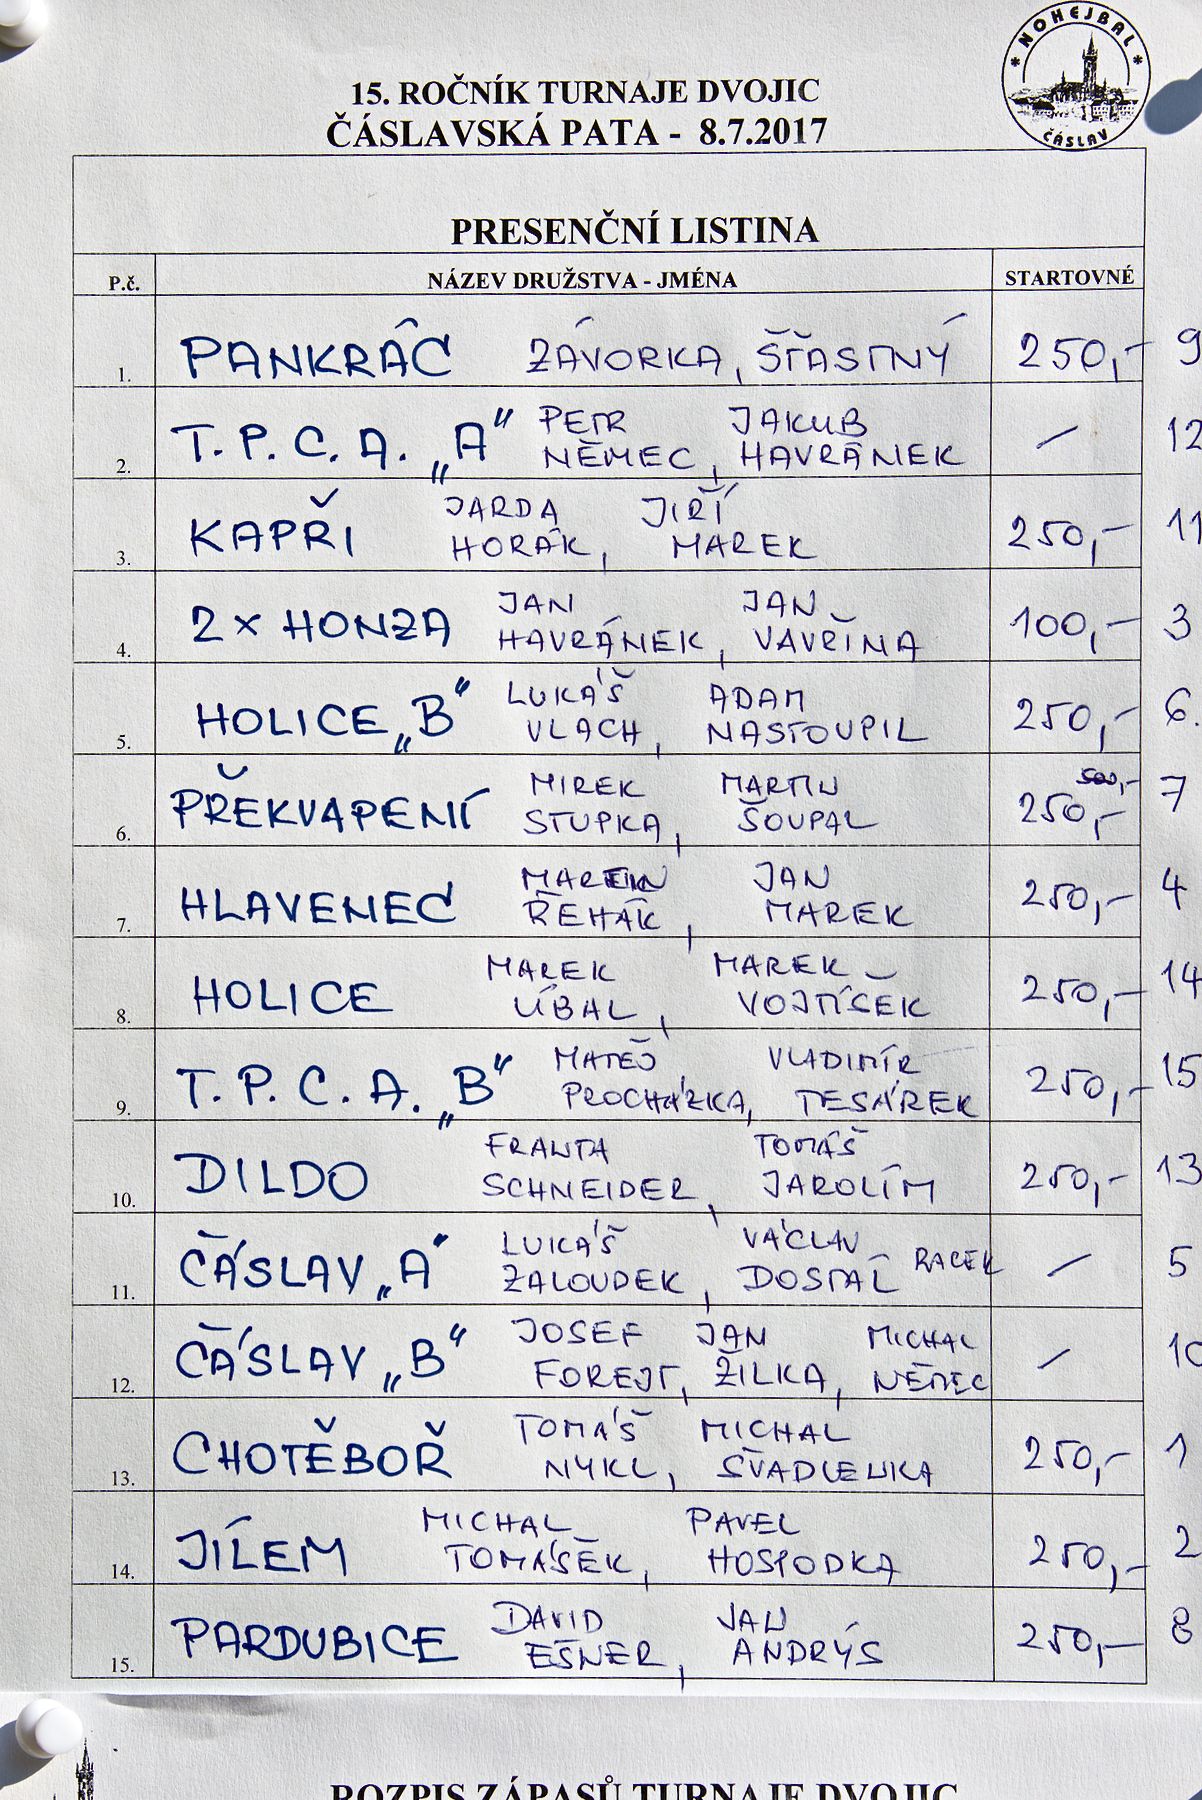 NOHEJBAL
ČÁSLAV
15. ROČNÍK TURNAJE DVOJIC
ČÁSLAVSKÁ PATA - 8.7.2017
PRESENČNÍ LISTINA
P.č. NÁZEV DRUŽSTVA - JMÉNA STARTOVNÉ
1. PANKRÁC ZÁVORKA, ŠŤASTNÝ 250,- 9
PETR JAKUB
2. T.P.C.A. „A“ NĚMEC, HAVRÁNEK / 12
JARDA JIŘÍ
3. KAPŘI HORÁK, MAREK 250,- 11
JAN JAN
4. 2x HONZA HAVRÁNEK, VAVŘINA 100,- 3
LUKÁŠ ADAM
5. HOLICE „B“ VLACH, NASTOUPIL 250,- 6.
MIREK MARTIN 500,-
6. PŘEKVAPENÍ STUPKA, ŠOUPAL 250,- 7
JAN
7. HLAVENEC ŘEHÁK, MAREK 250,- 4
MAREK MAREK
8. HOLICE ÚBAL, VOJTÍŠEK 250,- 14
MATĚJ VLADIMÍR
9. T.P.C.A. „B“ PROCHÁZKA, TESÁREK 250,- 15
FRANTA TOMÁŠ
10. DILDO SCHNEIDER, JAROLÍM 250,- 13
LUKÁŠ VÁCLAV
11. ČÁSLAV „A“ ŽALOUDEK, DOSTÁL RACEK / 5
JOSEF JAN MICHAL
12. ČÁSLAV „B“ FOREJT, ŽILKA, NĚMEC / 10
TOMÁŠ MICHAL
13. CHOTĚBOŘ NYKL, ŠVADLENKA 250,- 1
MICHAL PAVEL
14. JÍLEM TOMÁŠEK, HOSPODKA 250,- 2
DAVID JAN
15. PARDUBICE EŠNER, ANDRÝS 250,- 8
ROZPIS ZÁPASŮ TURNAJE DVOJIC